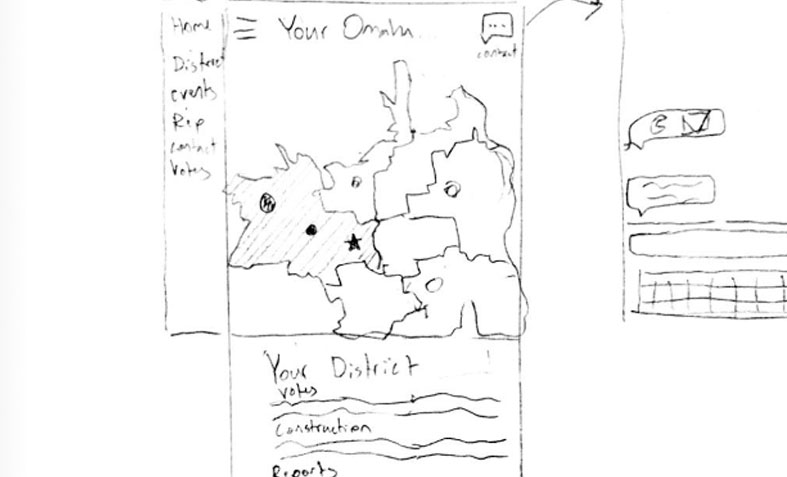 Home
District
events
Rep
contact
votes
Your Omaha
contact
Your District
votes
Construction
Reports